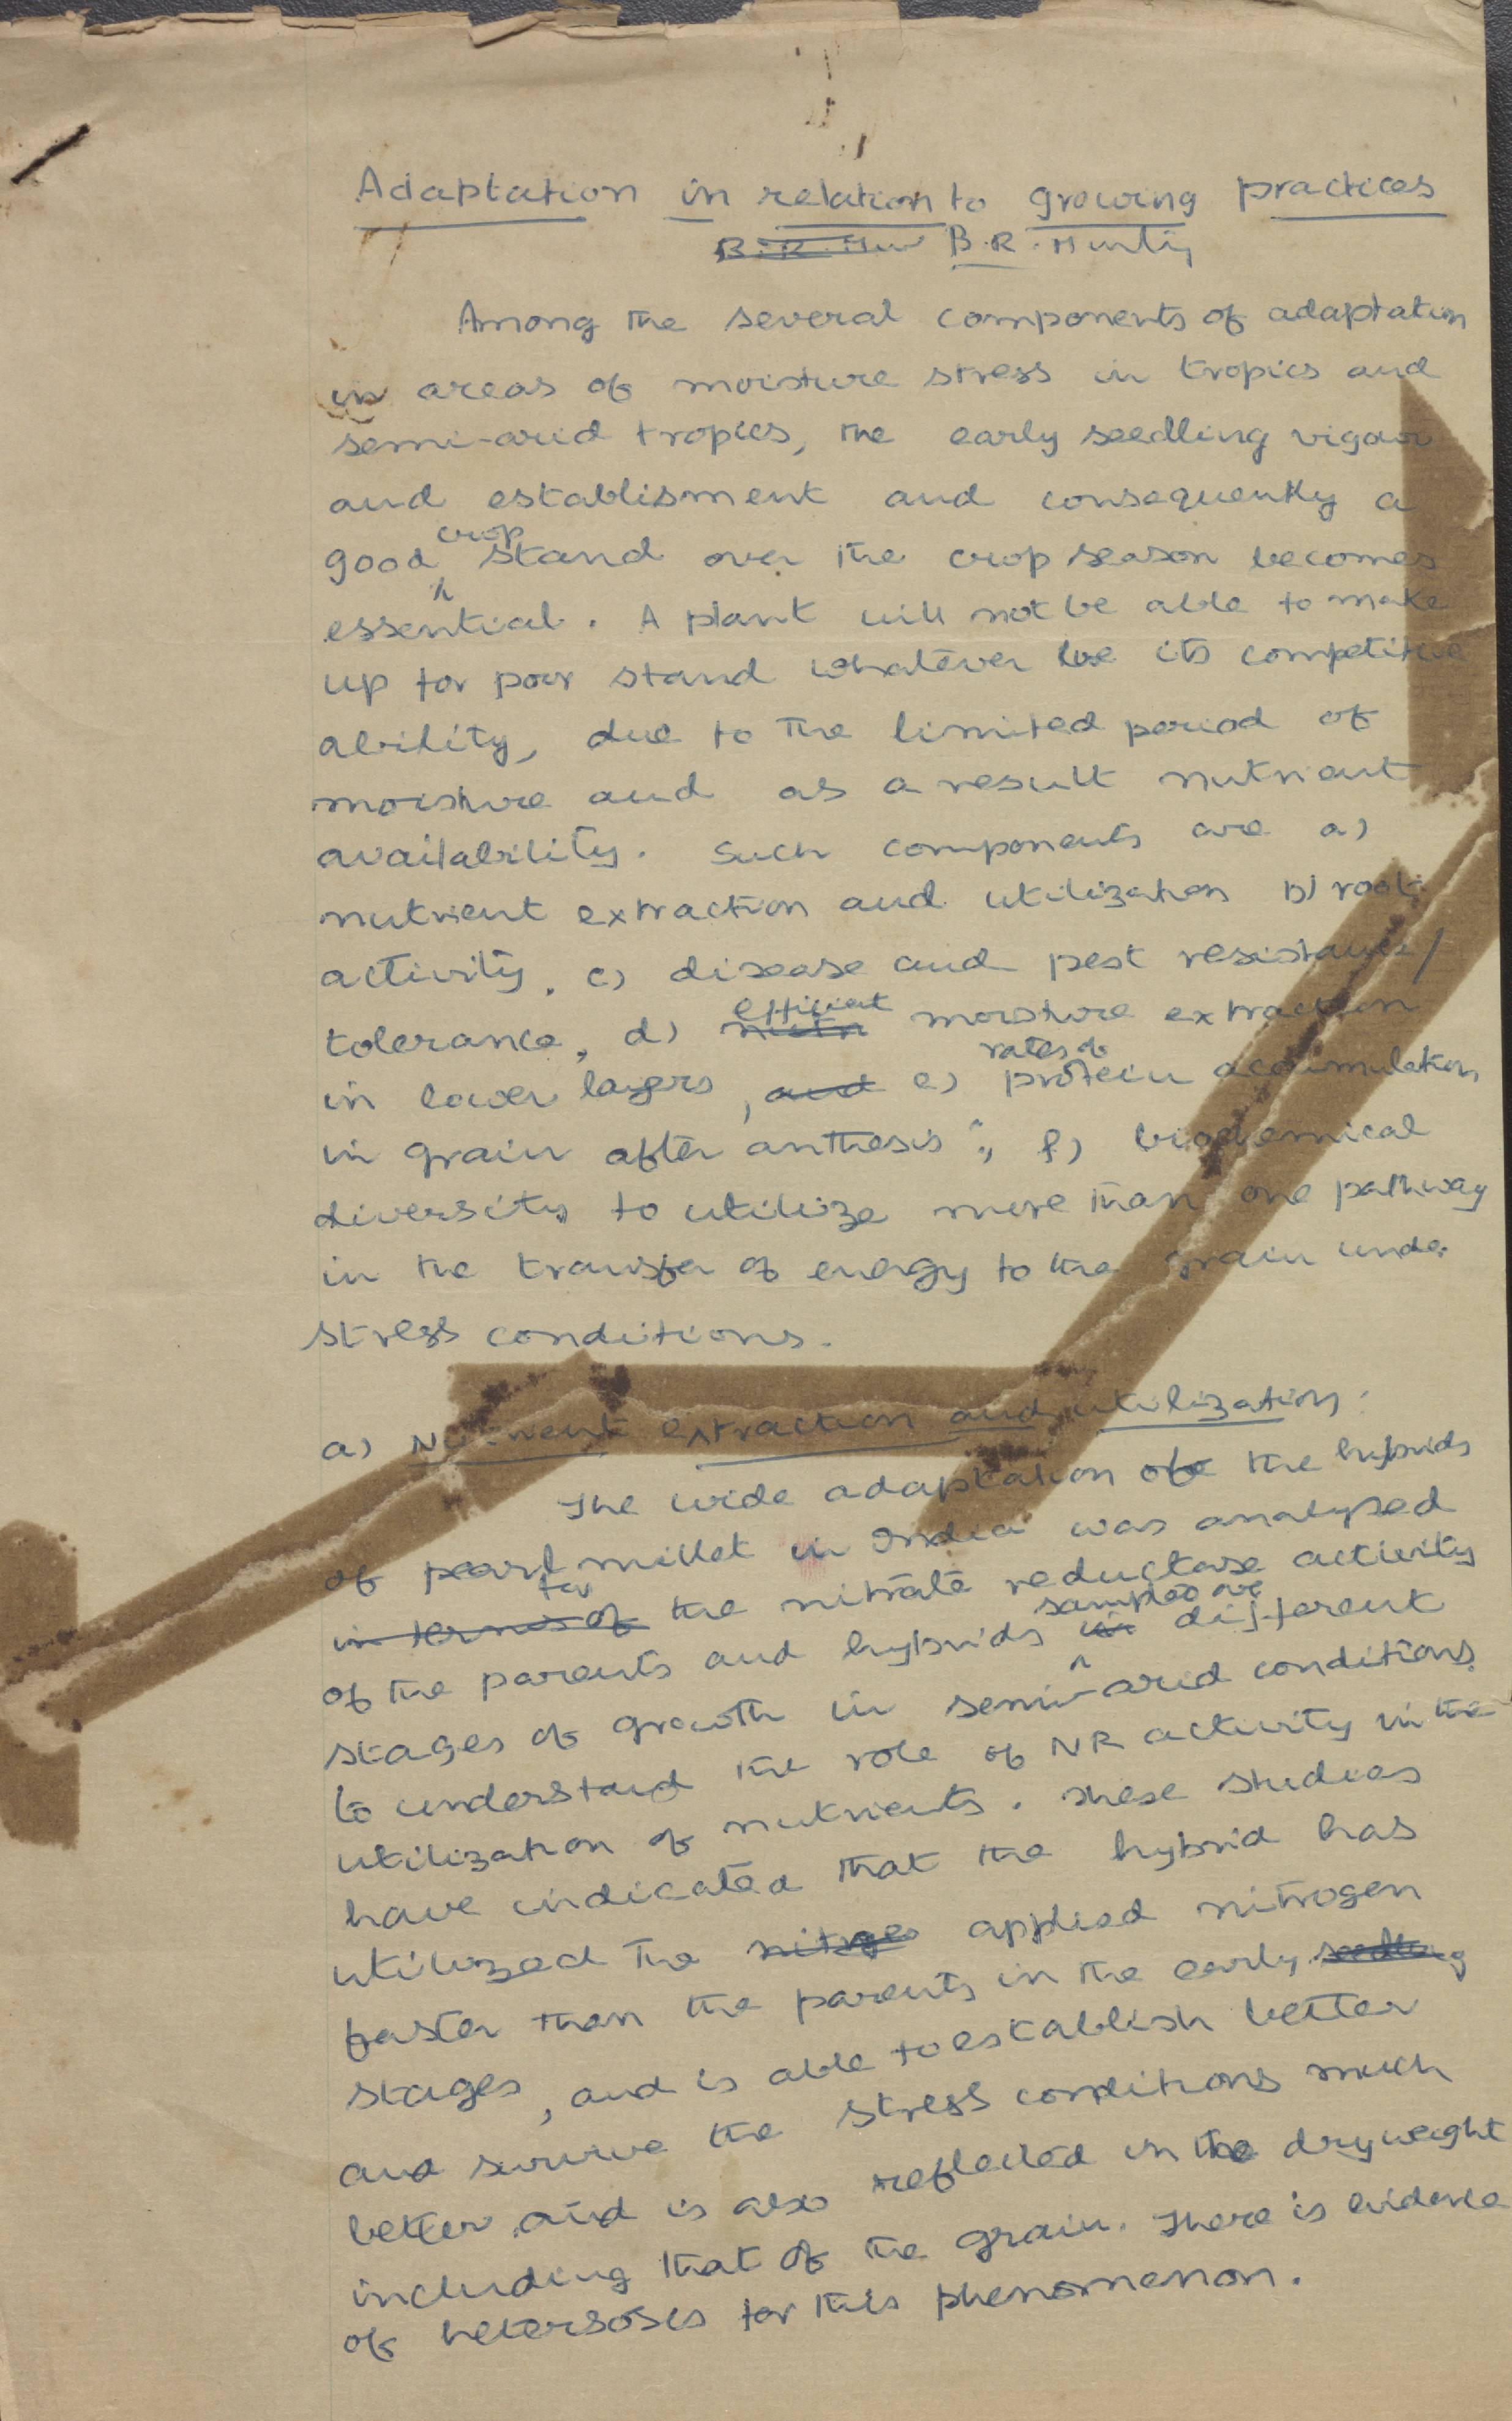 Adaptation in relation to growing practices
B.R. Mu B.R. Murty
Among the several components of adaptation
in areas of moisture stress in tropics and
semi-arid tropics, the early seedling vigour
and establisment and consequently a
good crop stand over the crop season becomes
essential. A plant will not be able to make
up for poor stand whatever be its competitive
ability, due to the limited period of
moisture and as a result nutrient
availability. Such components are a)
nutrient extraction and utilization b) root
activity, c) disease and pest resistance/
tolerance, d) efficient moisture extraction
in lower layers, and e) rates of protein accumulation
in grain after anthesis; f) biochemical
diversity to utilize more than one pathway
in the transfer of energy to the grain under
stress conditions.
a) Nutrient extraction and utilization:
The wide adaptation of the hybrids
of pearl millet in India was analysed
in terms of for the nitrate reductase activity
of the parents and hybrids in sampled over different
stages of growth in semi-arid conditions
to understand the role of NR activity in the
utilization of nutrients. These studies
have indicated that the hybrid has
utilized the applied nitrogen
faster than the parents in the early seedling
stages, and is able to establish better
and survive the stress conditions much
better and is also reflected in the dry weight
including that of the grain. There is evidence
of hetersosis for this phenomenon.